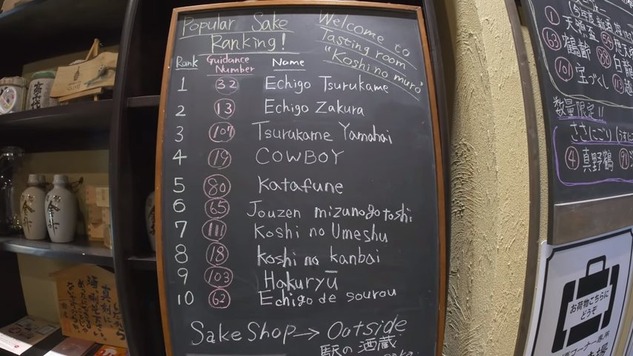 Popular Sake
Ranking!
Welcome to
Tasting room
"Koshi no muro"
Rank Guidance Number Name
1 32 Echigo Tsurukame
2 13 Echigo Zakura
3 107 Tsurukame Yamahai
4 19 COWBOY
5 80 Katafune
6 65 Jouzen mizunogotoshi
7 111 Koshi no Umeshu
8 18 Koshi no kanbai
9 103 Hakuryū
10 62 Echigo de sourou
Sake Shop → Outside
駅の酒蔵
数量限定!!
④ 真野鶴
お荷物こちらに
どうぞ